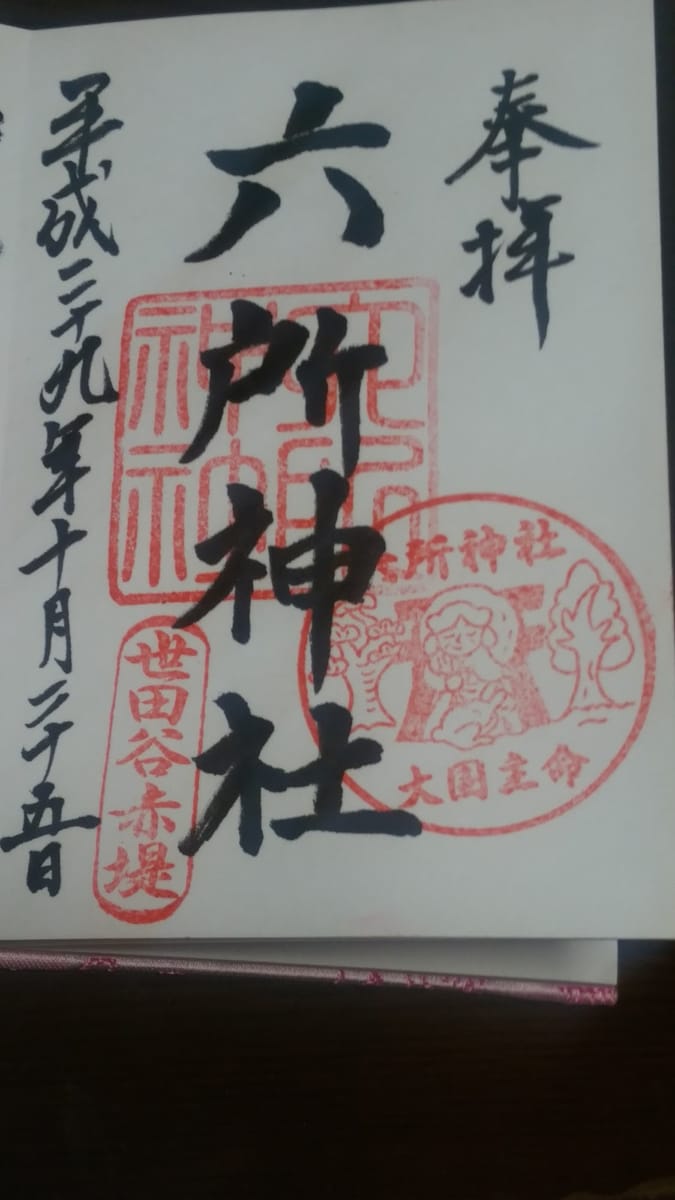 奉拝
六所神社
平成二十九年十月二十五日
六所神社
世田谷赤堤
六所神社
大国主命